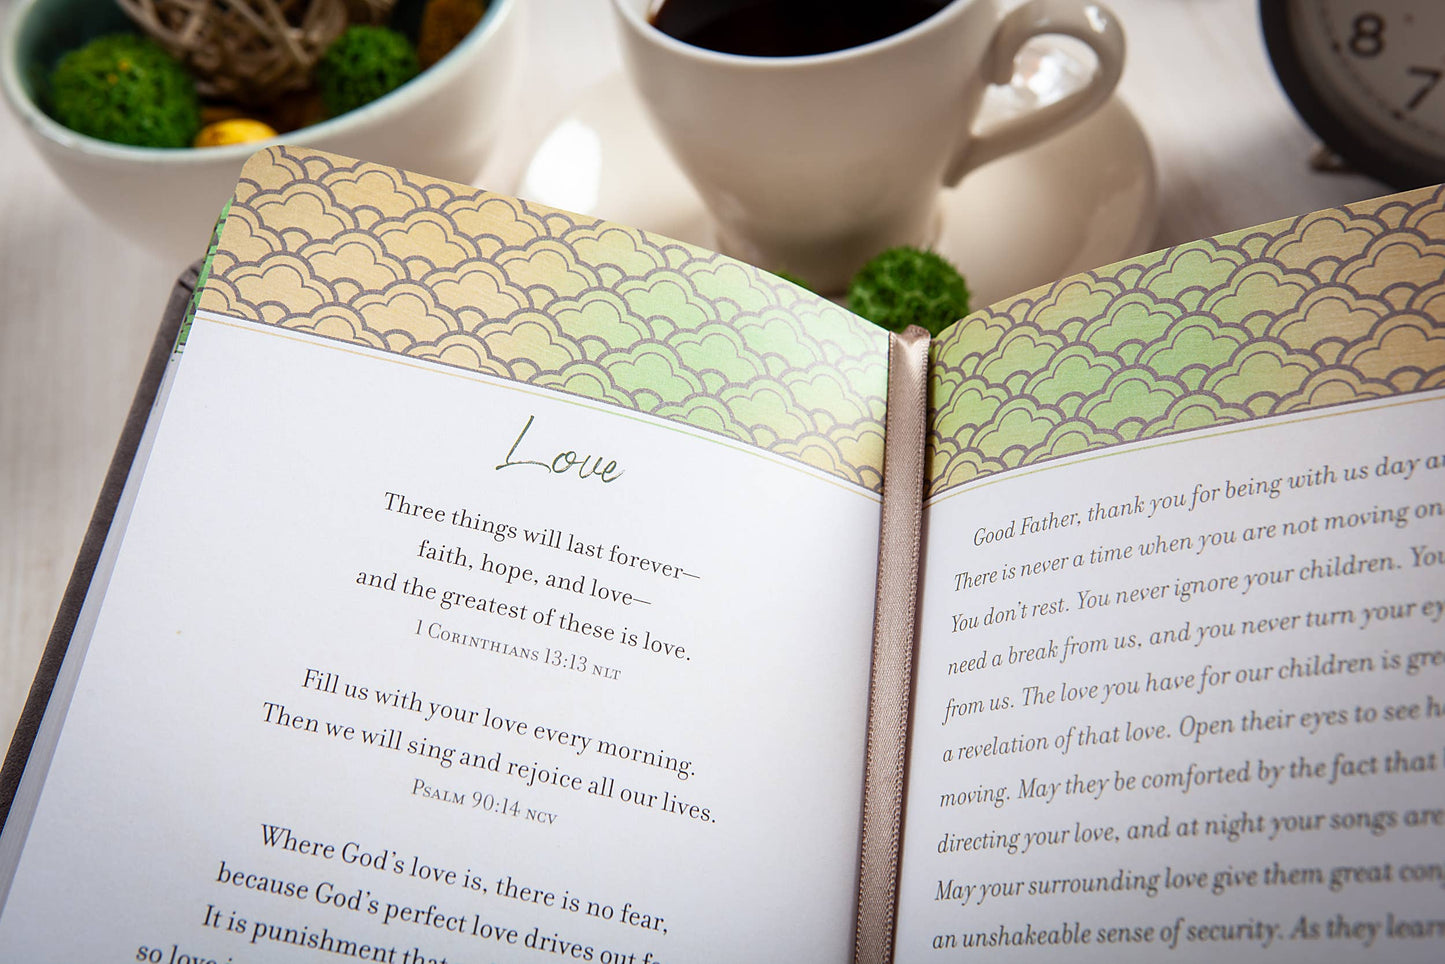 8
7
Love
Three things will last forever—
faith, hope, and love—
and the greatest of these is love.
1 Corinthians 13:13 NLT
Fill us with your love every morning.
Then we will sing and rejoice all our lives.
Psalm 90:14 NCV
Where God's love is, there is no fear,
because God's perfect love drives out
It is punishment
so
Good Father, thank you for being with us day
There is never a time when you are not moving on
You don't rest. You never ignore your children.
need a break from us, and you never turn your
from us. The love you have for our children is
a revelation of that love. Open their eyes to see
moving. May they be comforted by the fact that
directing your love, and at night your songs are
May your surrounding love give them great
an unshakeable sense of security. As they learn